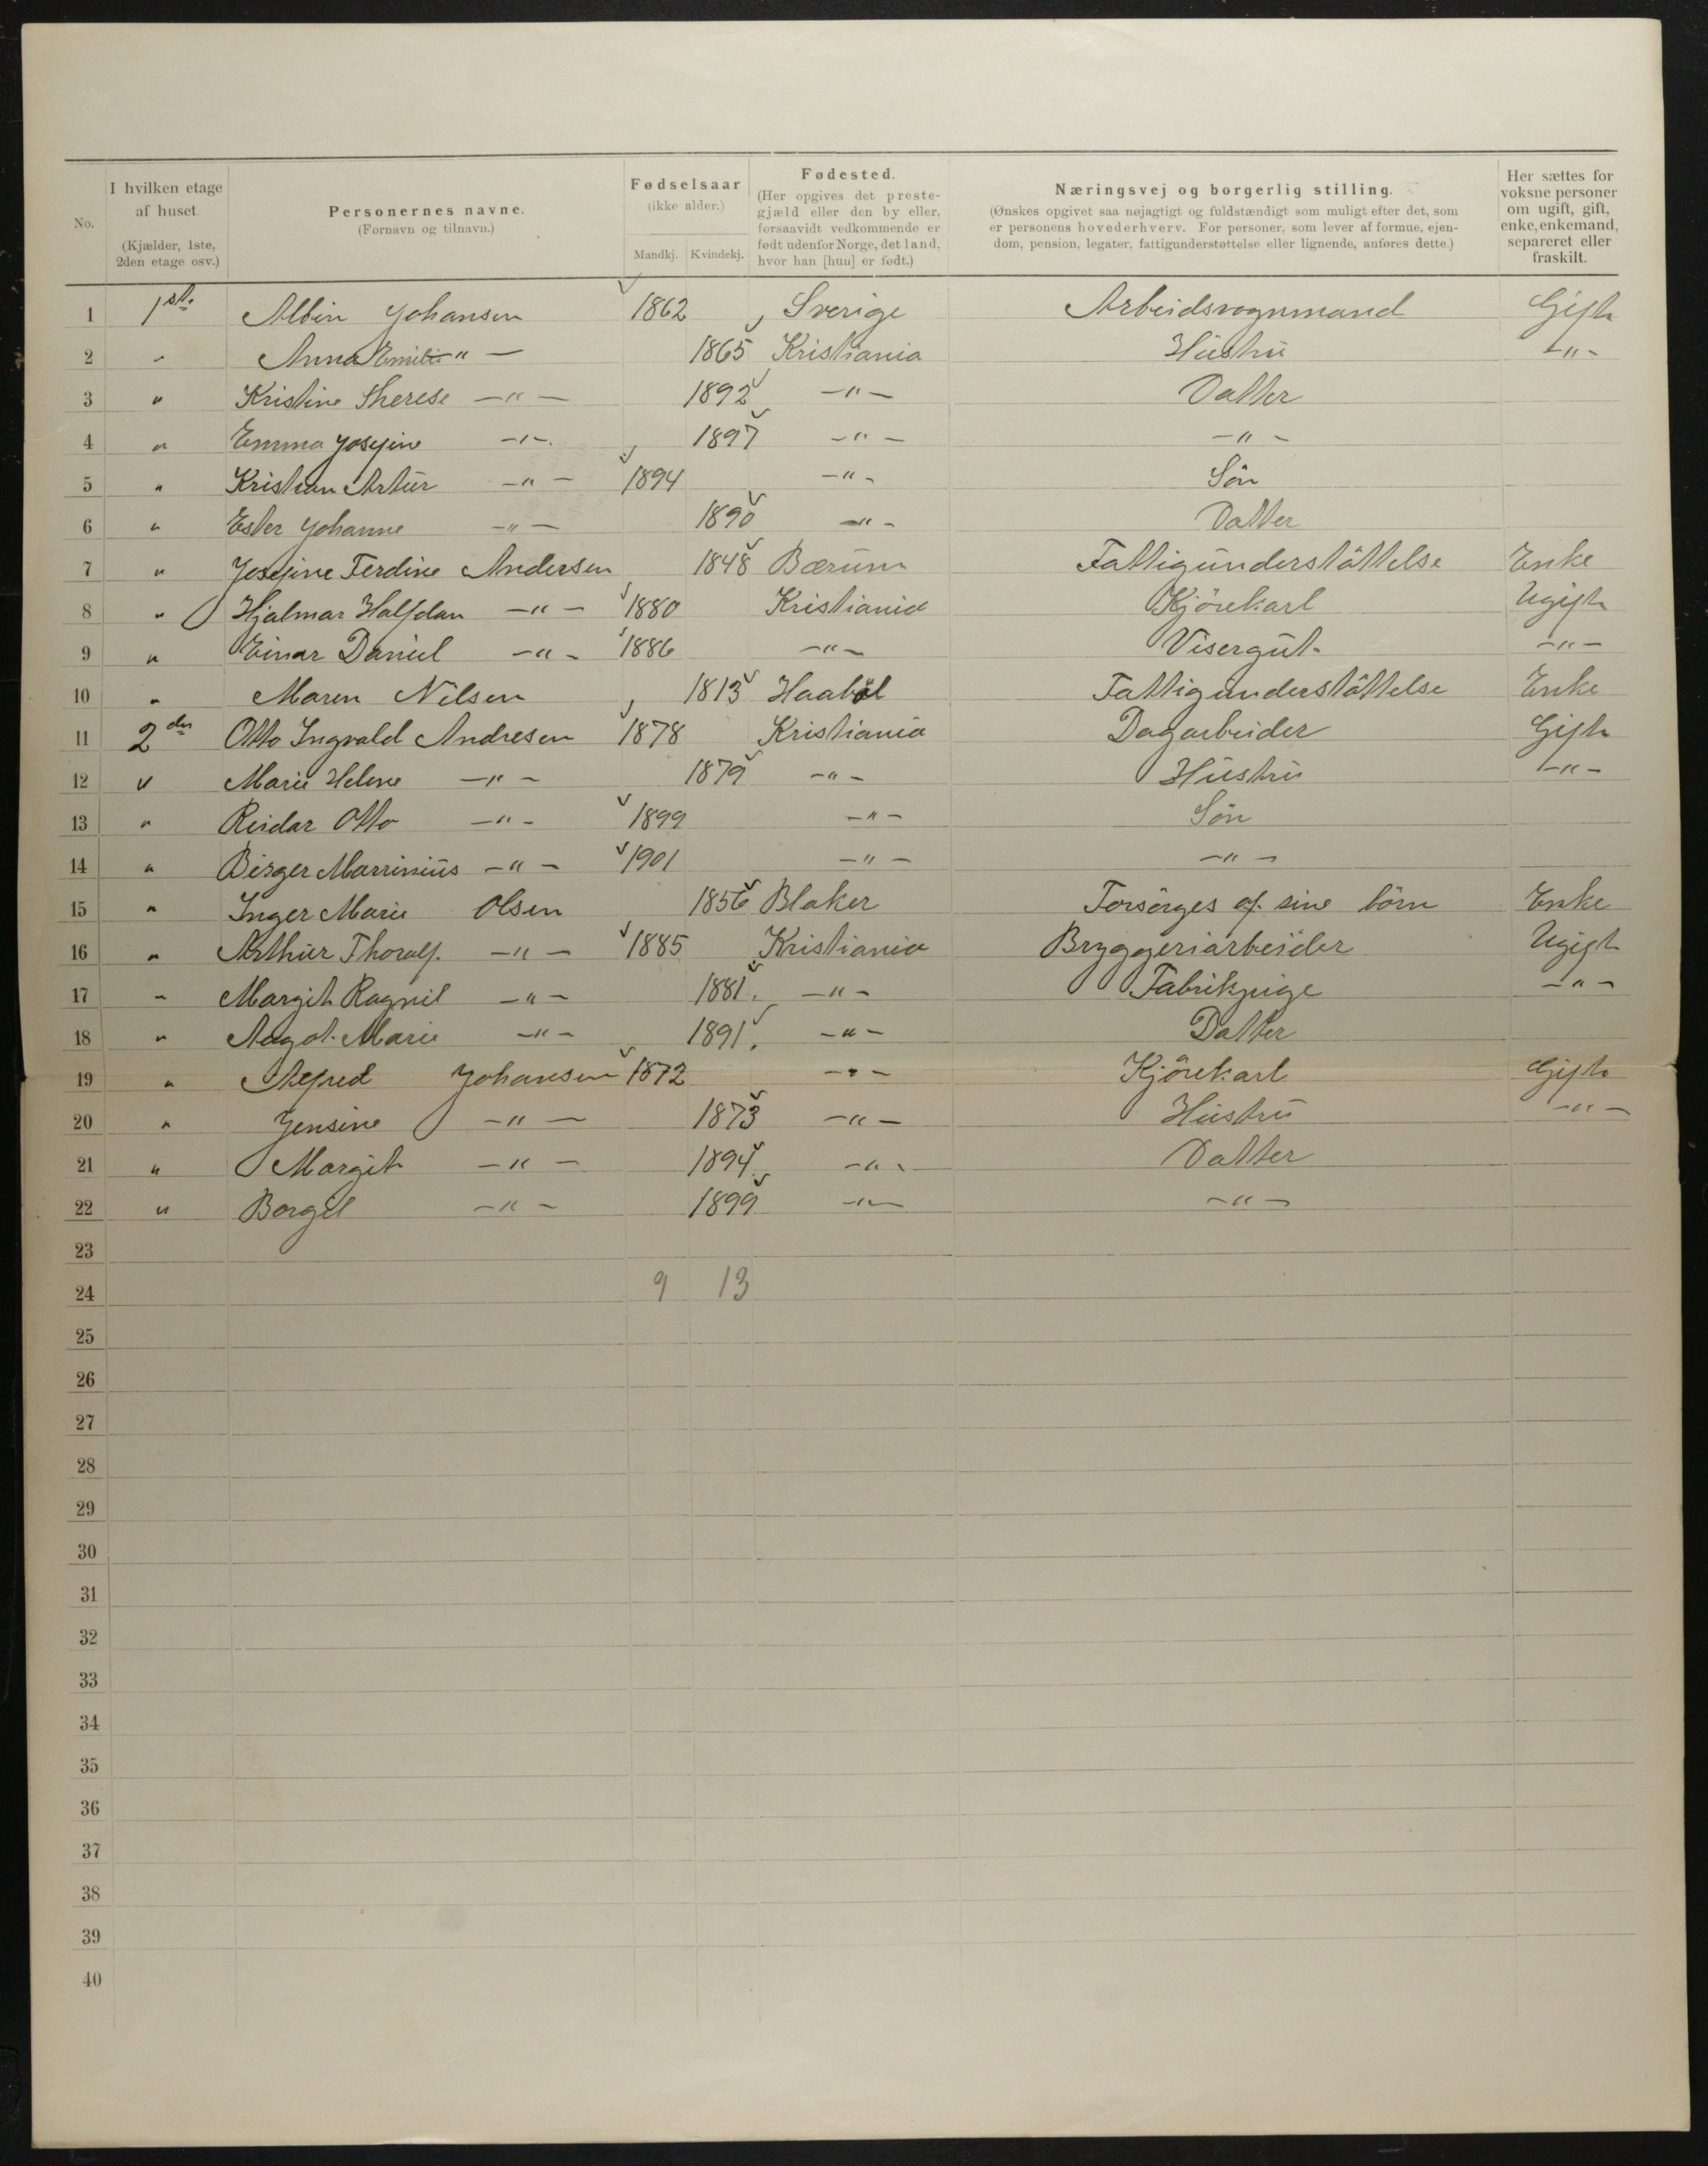 No. | I hvilken etage af huset. (Kjælder, 1ste, 2den etage osv.) | Personernes navne. (Fornavn og tilnavn.) | Fødselsaar (ikke alder.) Mandkj. Kvindekj. | Fødested. (Her opgives det prestegjæld eller den by eller, forsaavidt vedkommende er født udenfor Norge, det land, hvor han [hun] er født.) | Næringsvej og borgerlig stilling. (Ønskes opgivet saa nøjagtigt og fuldstændigt som muligt efter det, som er personens hovederhverv. For personer, som lever af formue, ejendom, pension, legater, fattigunderstøttelse eller lignende, anføres dette.) | Her sættes for voksne personer om ugift, gift, enke, enkemand, separeret eller fraskilt.
1 1ste Albin Johansen 1862 Sverige Arbeidsvognmand Gift
2 " Anna Emilie " — 1865 Kristiania Hüstrü — " —
3 " Kristine Therese — " — 1892 — " — Datter
4 " Emma Josefine — " — 1897 — " — — " —
5 " Kristian Artür — " — 1894 — " — Sön
6 " Ester Johanne — " — 1890 — " — Datter
7 " Josefine Ferdine Andersen 1848 Bærüm Fattigünderstöttelse Enke
8 " Hjalmar Halfdan — " — 1880 Kristiania Kjörekarl Ugift
9 " Einar Daniel — " — 1886 — " — Visergüt — " —
10 " Maren Nilsen 1813 Haaböl Fattigunderstöttelse Enke
11 2den Otto Ingvald Andresen 1878 Kristiania Dagarbeider Gift
12 " Marie Helene — " — 1879 — " — Hüstrü — " —
13 " Reidar Otto — " — 1899 — " — Sön
14 " Birger Marriniüs — " — 1901 — " — — " —
15 " Inger Marie Olsen 1856 Blaker Forsörges af sine börn Enke
16 " Arthür Thoralf — " — 1885 Kristiania Bryggeriarbeider Ugift
17 " Margit Ragnil — " — 1881 — " — Fabrikpige — " —
18 " Aagot Marie — " — 1891 — " — Datter
19 " Alfred Johansen 1872 — " — Kjörekarl Gift
20 " Jensine — " — 1873 — " — Hüstrü — " —
21 " Margit — " — 1894 — " — Datter
22 " Borgil — " — 1899 — " — — " —
23
24 9 13
25
26
27
28
29
30
31
32
33
34
35
36
37
38
39
40